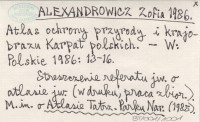 ALEXANDROWICZ Zofia 1986.
Atlas ochrony przyrody i krajo-
brazu Karpat polskich. — W:
Polskie 1986: 13-16.
Streszczenie referatu jw. o
atlasie jw. (w druku, praca zbior.).
M.in. o Atlasie Tatrz. Parku Nar. (1985).